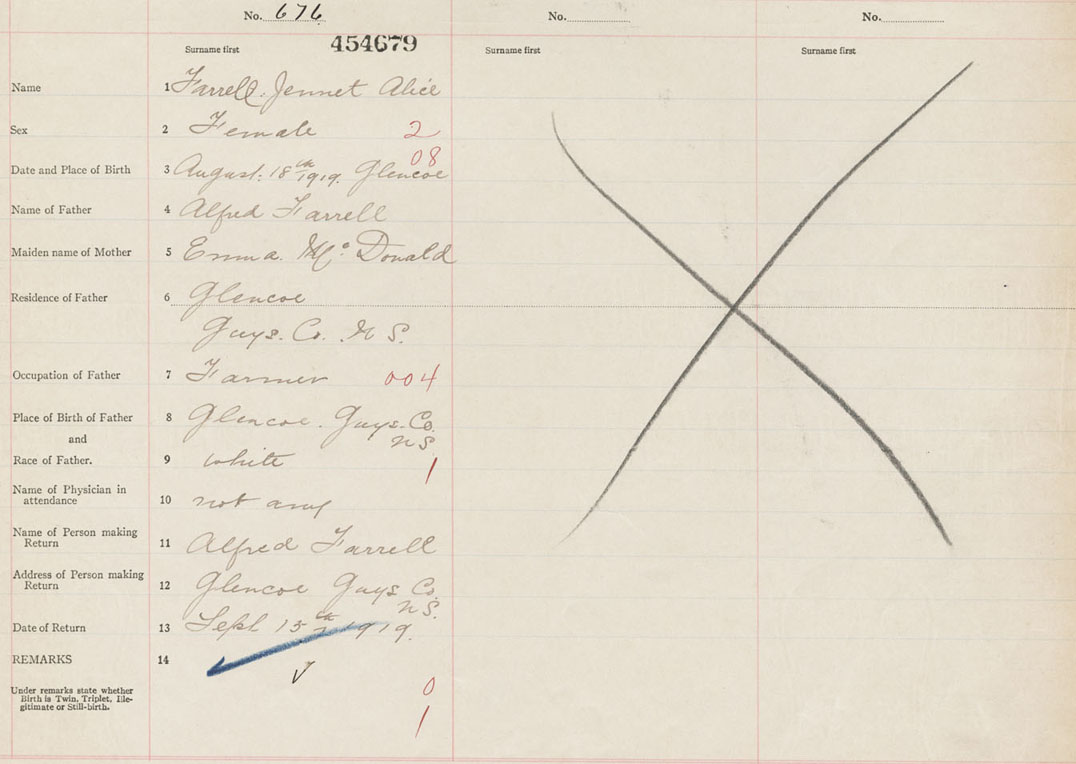 No. 676 No. No.
454679
Surname first Surname first Surname first
Name 1 Farrell. Jennet Alice
Sex 2 Female 2
08
Date and Place of Birth 3 August. 18th 1919. Glencoe
Name of Father 4 Alfred Farrell
Maiden name of Mother 5 Emma. Mc Donald
Residence of Father 6 Glencoe
Guys. Co. N S.
Occupation of Father 7 Farmer 004
Place of Birth of Father 8 Glencoe. Guys. Co.
and N S.
Race of Father. 9 white 1
Name of Physician in
attendance 10 not any
Name of Person making
Return 11 Alfred Farrell
Address of Person making
Return 12 Glencoe Guys Co.
N S.
Date of Return 13 Sept 15th 1919.
REMARKS 14
Under remarks state whether
Birth is Twin, Triplet, Ille-
gitimate or Still-birth.
0
1